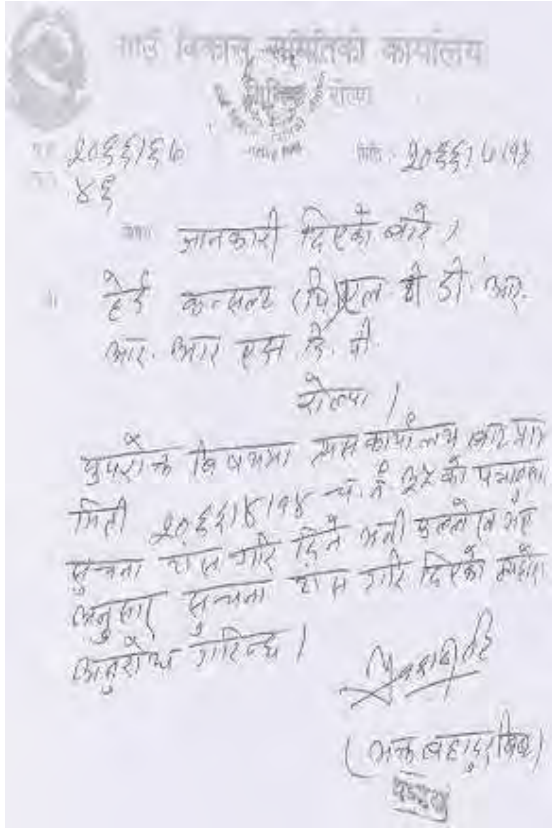 गाउँ विकास समितिको कार्यालय
रोल्पा
२०६६।६७
मिति: २०६६।७।१५
४६
विषय: जानकारी दिएको बारे।
श्री हेर्ड कन्सल्ट (प्रि) एल. बी. डी. आर.
आर. आर एस. डि. पी.
रोल्पा।
उपरोक्त बिषयमा त्यस कार्यालय बाट प्राप्त
मिती २०६६।४।१४ च. नं को पत्रानुसार
सुचना टाँस गरि दिने भनी उल्लेख भए
अनुसार सुचना टाँस गरि दिएको व्यहोरा
अनुरोध गरिन्छ।
(भक्त बहादुर